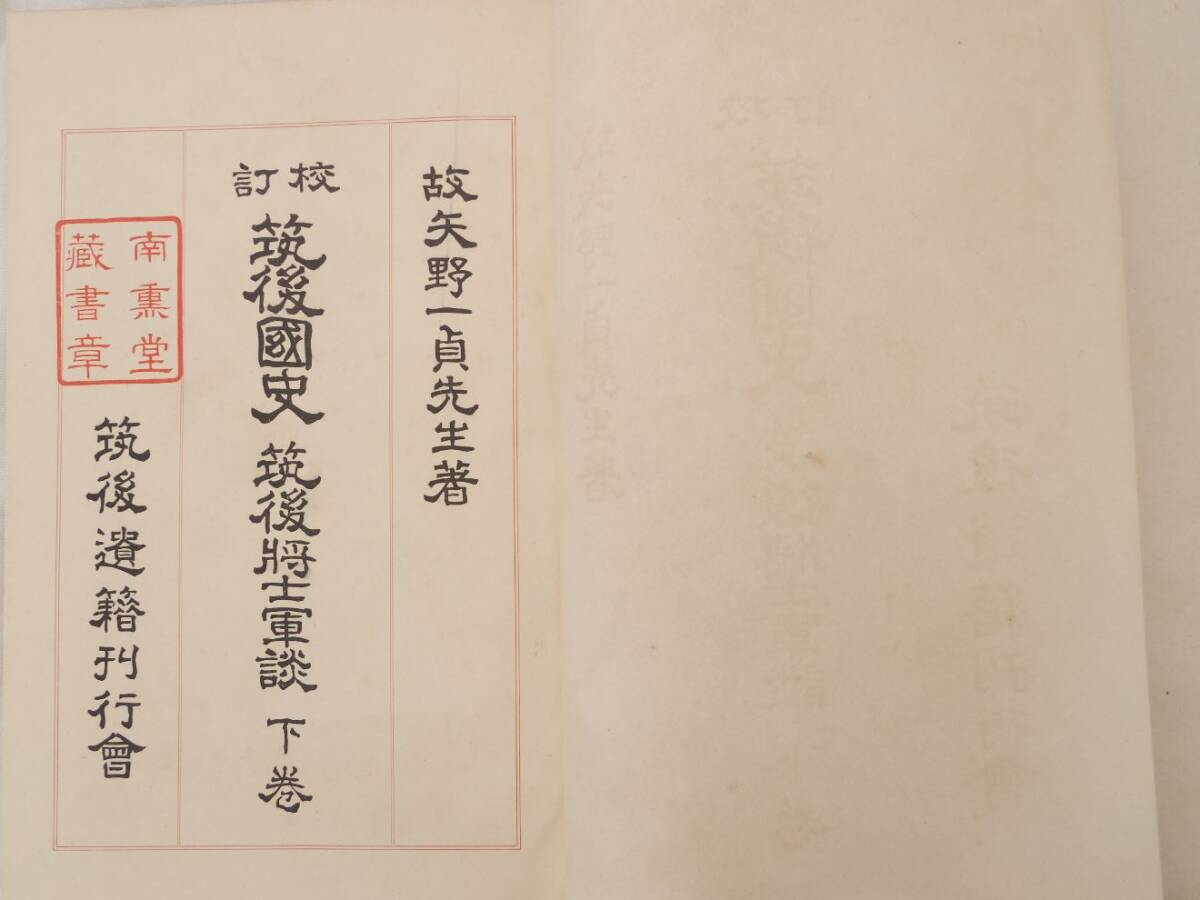 故矢野一貞先生著
校訂
筑後國史 筑後將士軍談 下巻
筑後遺籍刊行會
南熏堂
藏書章